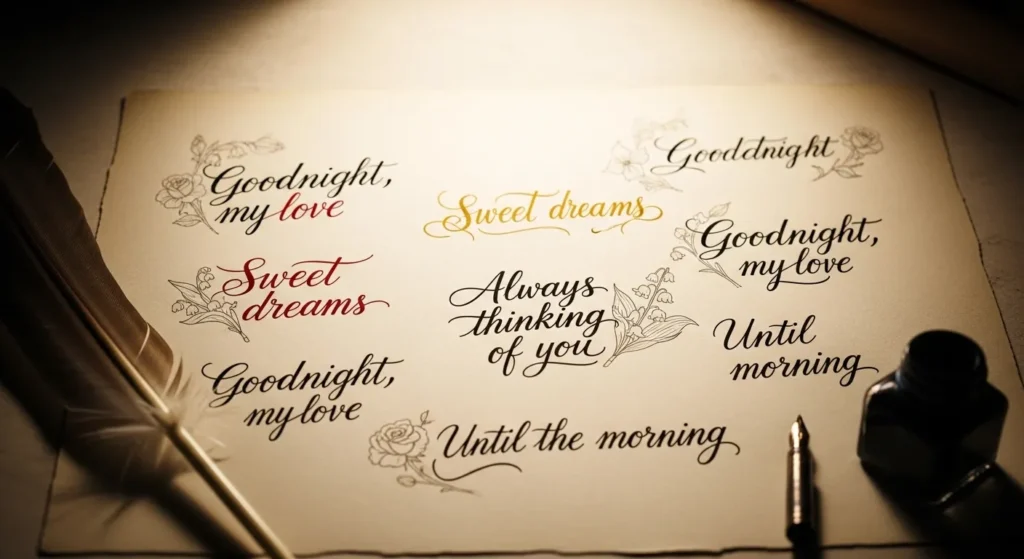 Goodnight,
my love
Sweet
dreams
Goodnight,
my love
Sweet dreams
Always
thinking
of you
Until the morning
Gooddtnight
Goodnight,
my love
Until
morning